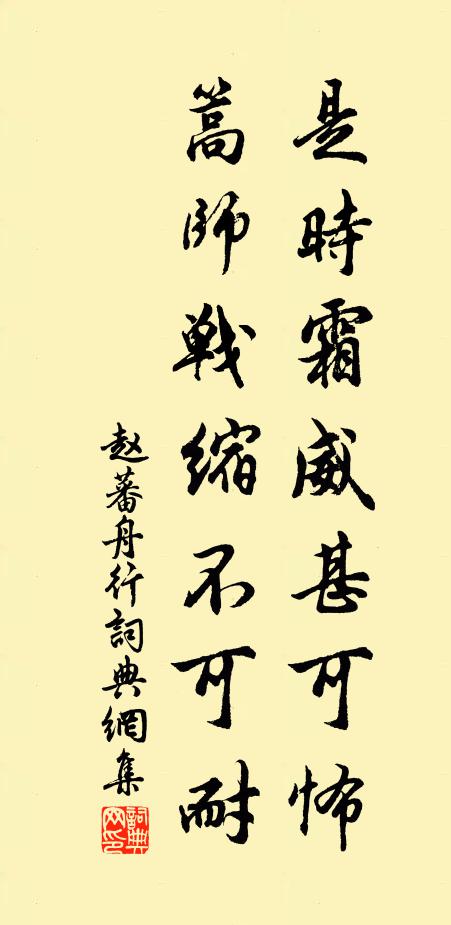 是時霜威甚可怖
篙師戰縮不可耐
赵蕃舟行詞典網集
詞典网印